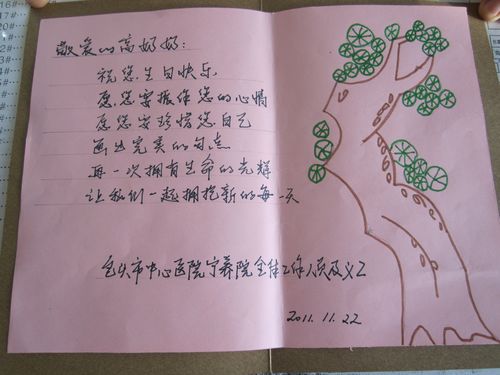 敬爱的高奶奶：
祝您生日快乐
愿您要振作您的心情
愿您要珍惜您自己
画出完美的句点
再一次拥有生命的光辉
让我们一起拥抱新的每一天
包头市中心医院宁养院全体工作人员及义工
2011.11.22